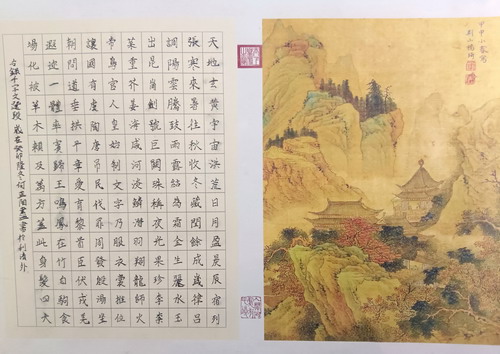 天地玄黃宇宙洪荒日月盈昃辰宿列
張寒來暑往秋收冬藏閏餘成歲律呂
調陽雲騰致雨露結為霜金生麗水玉
出崑崗劍號巨闕珠稱夜光果珍李柰
菜重芥薑海鹹河淡鱗潛羽翔龍師火
帝鳥官人皇始制文字乃服衣裳推位
讓國有虞陶唐弔民伐罪周發殷湯坐
朝問道垂拱平章愛育黎首臣伏戎羌
遐邇一體率賓歸王鳴鳳在竹白駒食
場化被草木賴及萬方蓋此身髮四大
右錄千字文選段 歲在癸卯隆冬
甲申小春寫